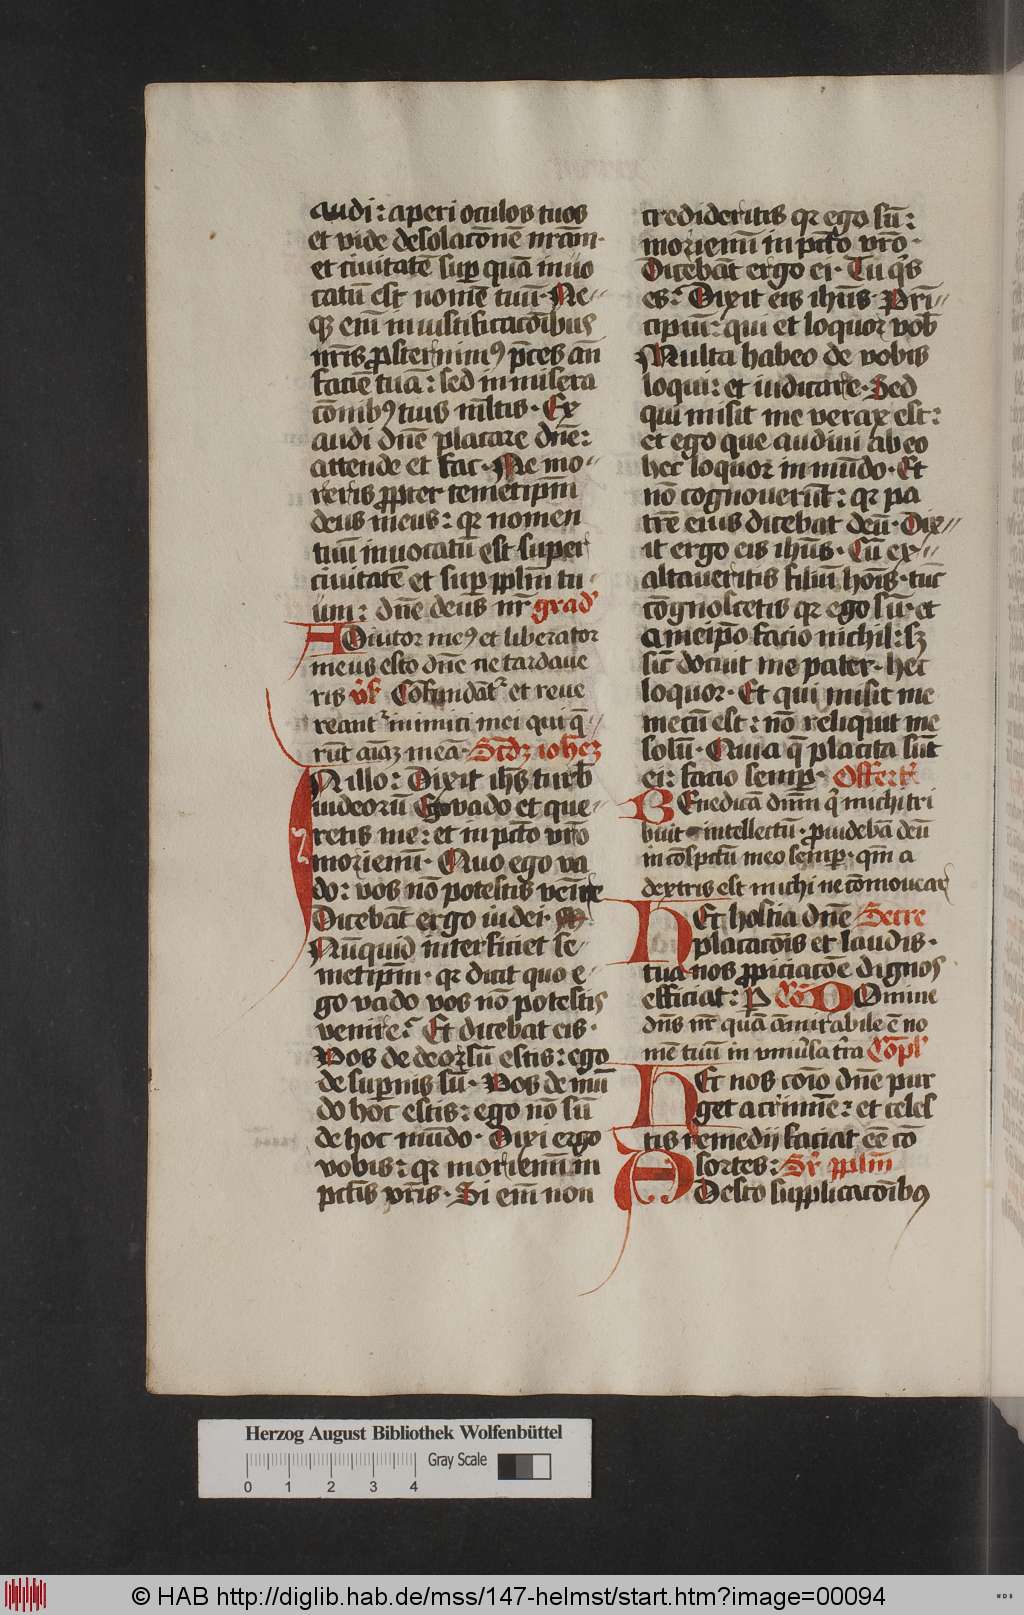 audi: aperi oculos tuos
et vide desolacōnē nrām·
et ciuitatē sup quā inuo
catū est nomē tuū· Ne-
qꝫ em̄ in iustificacōibus
nr̄is ꝓsternimꝰ p̄ces an̄
faciē tuā: sed in misera
cōnibꝰ tuis ml̄tis· Ex
audi dn̄e placare dn̄e:
attende et fac· Ne mo-
reris ꝓpter temetip̄m
deus meus: qr nomen
tuū inuocatū est super
ciuitatē et sup pplm̄ tu
um: dn̄e deus nr̄ grad'
ADiutor meꝰ et liberator
meus esto dn̄e ne tardaue
ris v̓s Cōfundāt᷑ et reue
reant᷑ inimici mei qui q̄-
rūt aīaꝫ meā· Scd̄ꝫ iohēꝫ
IN illo: Dixit ih̄s turb̄
iudeorū Ego vado et que-
retis me: et in pctō vr̄o
moriemī· Quo ego va
do: vos nō potestis venire
Dicebāt ergo iudei·
Nūnquid interficiet se-
metip̄m· qr dicit quo e-
go vado vos nō potestis
venire? Et dicebat eis·
Vos de deorsū estis: ego
de supnis sū· Vos de mū
do hoc estis: ego nō sū
de hoc mūdo· Dixi ergo
vobis: qr moriemī in
pctīs vr̄is· Si em̄ non
credideritis qr ego sū:
moriemī in pctō vr̄o·
Dicebāt ergo ei· Tu q̓s
es? Dixit eis ih̄us· Prī-
cipiū: qui et loquor vob̄
Multa habeo de vobis
loqui: et iudicare· Sed
qui misit me verax est:
et ego que audiui ab eo
hec loquor in mūdo· Et
nō cognouerūt: qr pa
trē eius dicebat deū· Dix-
it ergo eis ih̄us· Cū ex-
altaueritis filiū hoīs· tūc
cōgnoscetis qr ego sū· et
a meip̄o facio nichil: sꝫ
sic̄ docuit me pater· hec
loquor· Et qui misit me
mecū est: nō reliquit me
solū· Quia q̄ placita sūt
ei: facio semp· Offert᷑
BEnedicā dnm̄ q̓ michi tri
buit intellectū· ꝓuidebā deū
in cōspctū meo semp· qm̄ a
dextris est michi ne cōmouear
HEc hostia dn̄e Secre
placacōis et laudis·
tua nos ꝓpiciacōe dignos
efficiat: P Cō DOmine
dn̄s nr̄ quā āmirabile ē no
mē tuū in vniu̓sa tr̄a Cōpl'
HEc nos coīo dn̄e pur
get a crimīe: et celes
tis remedij faciat eē cō
sortes: Sr̄ pplm̄
ADesto supplicacōibꝰ
Herzog August Bibliothek Wolfenbüttel
Gray Scale
0 1 2 3 4
© HAB http://diglib.hab.de/mss/147-helmst/start.htm?image=00094